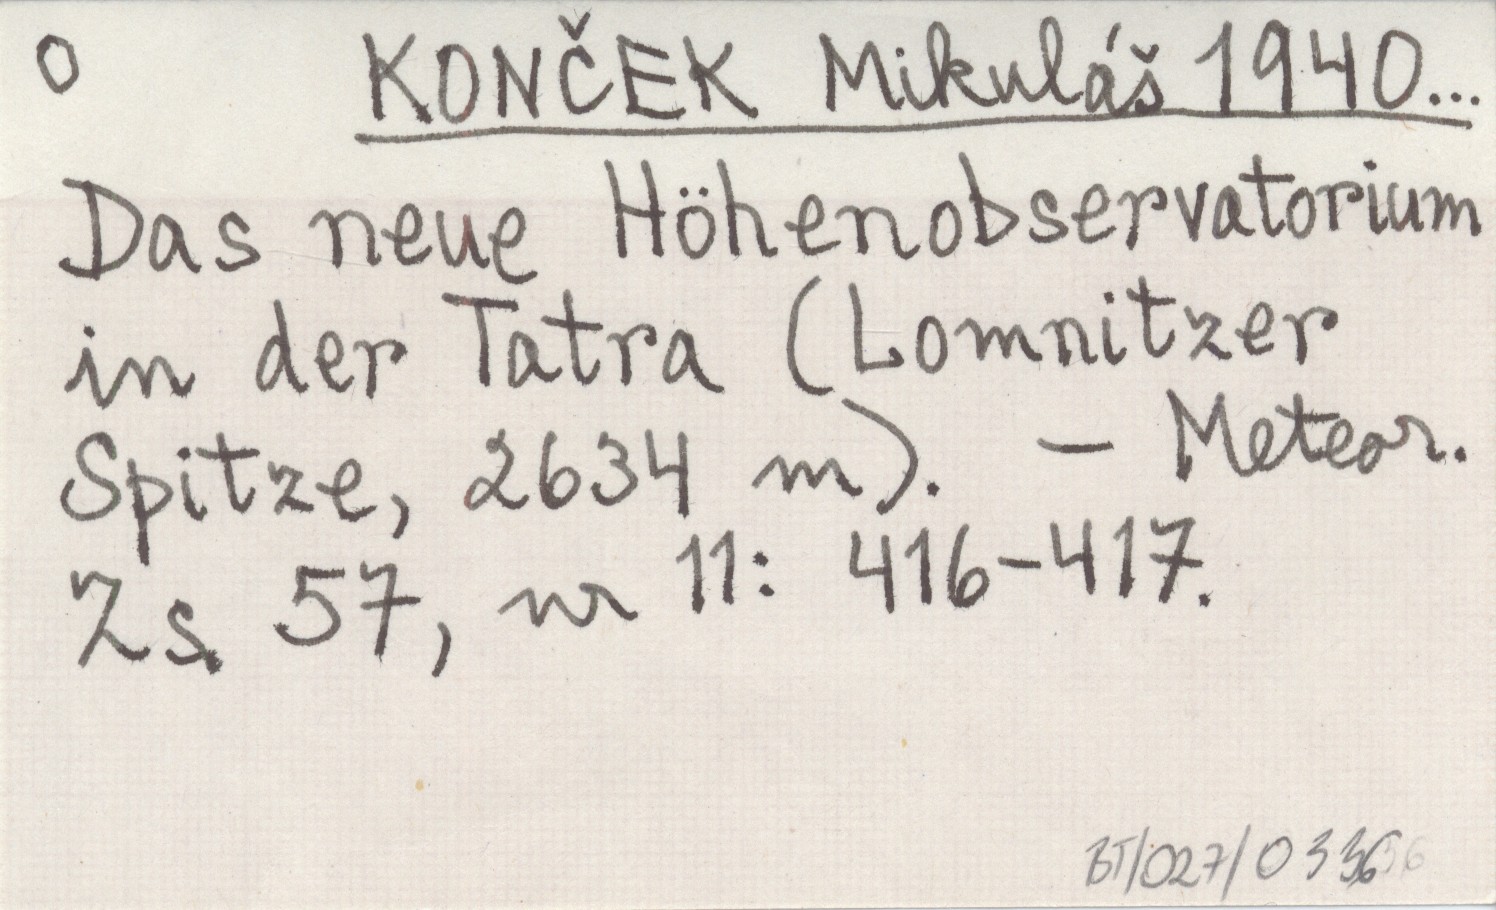 O KONČEK Mikuláš 1940...
Das neue Höhenobservatorium
in der Tatra (Lomnitzer
Spitze, 2634 m). – Meteor.
Zs. 57, nr 11: 416–417.
BT/027/0336